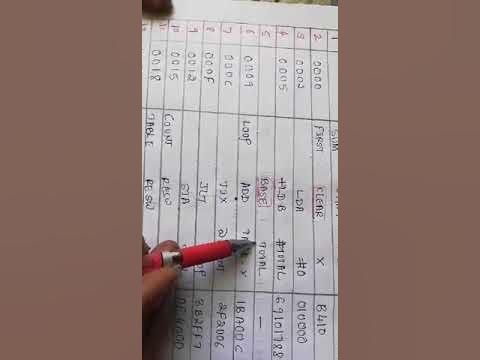 1 SUM
2 0000 FIRST CLEAR X B410
3 0002 LDA #0 010000
4 0005 +LDB #TOTAL 69101788
5 BASE TOTAL —
6 0009 LOOP ADD 1BA00C
7 000C TIX 2F2006
8 000F JLT 3B2FF7
9 0012 STA
10 0015 COUNT RESW
0018 TABLE RESW